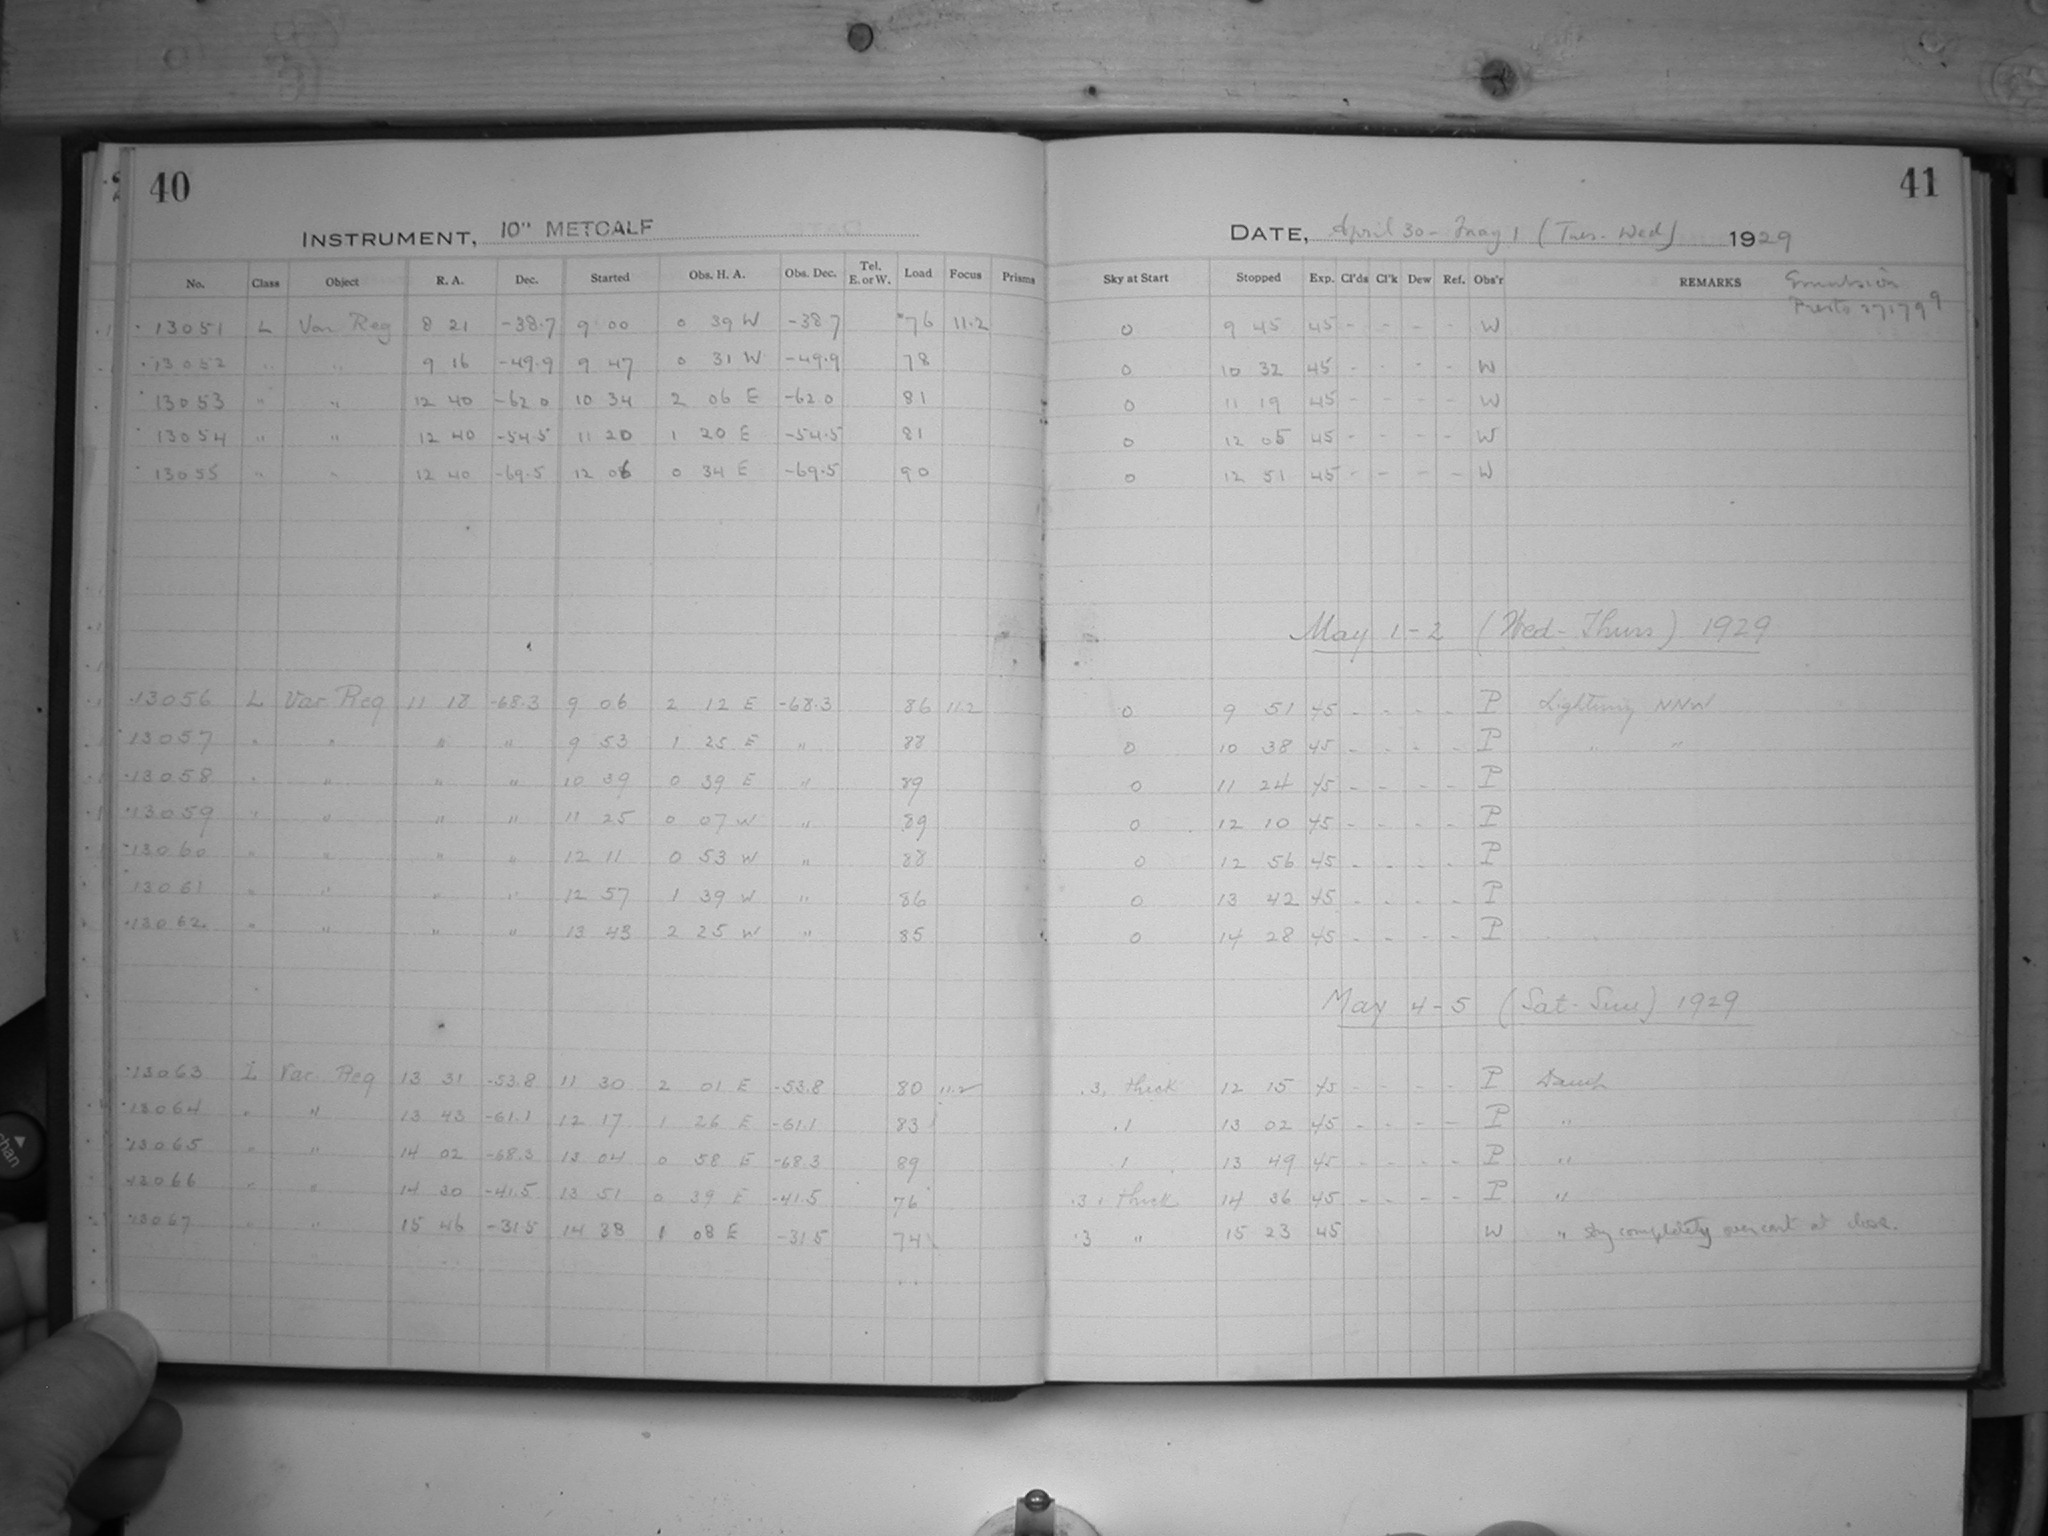 40
INSTRUMENT, 10" METCALF
No. Class Object R. A. Dec. Started Obs. H. A. Obs. Dec. Tel. E. or W. Load Focus Prisms
13051 L Var Reg 8 21 -38.7 9 00 0 39 W -38 7 76 11.2
13052 " " 9 16 -49.9 9 47 0 31 W -49.9 78
13053 " " 12 40 -62 0 10 34 2 06 E -62.0 81
13054 " " 12 40 -54.5 11 20 1 20 E -54.5 81
13055 " " 12 40 -69.5 12 06 0 34 E -69.5 90
13056 L Var Reg 11 18 -68.3 9 06 2 12 E -68.3 86 11.2
13057 " " " " 9 53 1 25 E " 88
13058 " " " " 10 39 0 39 E " 89
13059 " " " " 11 25 0 07 W " 89
13060 " " " " 12 11 0 53 W " 88
13061 " " " " 12 57 1 39 W " 86
13062 " " " " 13 43 2 25 W " 85
13063 L Var Reg 13 31 -53.8 11 30 2 01 E -53.8 80 11.2
13064 " " 13 43 -61.1 12 17 1 26 E -61.1 83
13065 " " 14 02 -68.3 13 04 0 58 E -68.3 89
13066 " " 14 30 -41.5 13 51 0 39 E -41.5 76
13067 " " 15 46 -31 5 14 38 1 08 E -31 5 74
41
DATE, April 30 - May 1 (Tues. Wed) 1929
Sky at Start Stopped Exp. Cl'ds Cl'k Dew Ref. Obs'r REMARKS Emulsion
Presto
0 9 45 45 - - - - W
0 10 32 45 - - - - W
0 11 19 45 - - - - W
0 12 05 45 - - - - W
0 12 51 45 - - - - W
May 1-2 (Wed-Thurs) 1929
0 9 51 45 - - - - P Lightning NNW
0 10 38 45 - - - - P " "
0 11 24 45 - - - - P
0 12 10 45 - - - - P
0 12 56 45 - - - - P
0 13 42 45 - - - - P
0 14 28 45 - - - - P
May 4-5 (Sat-Sun) 1929
.3, thick 12 15 45 - - - - P Damp
.1 13 02 45 - - - - P "
.1 13 49 45 - - - - P "
.3, thick 14 36 45 - - - - P "
.3 " 15 23 45 W " sky completely overcast at close.